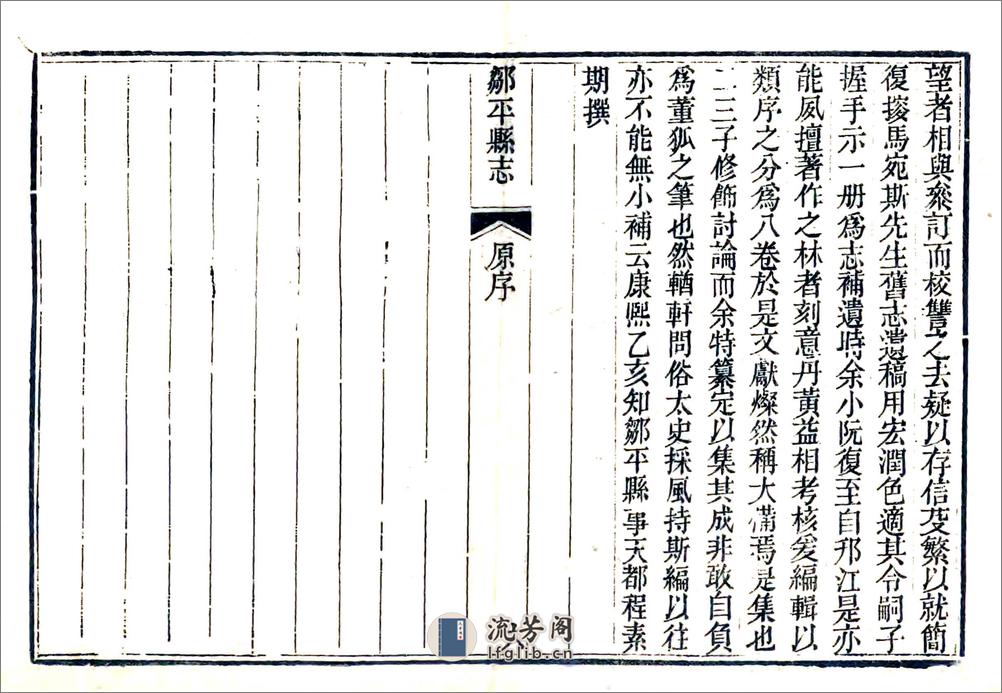 望者相與叅訂而校讐之去疑以存信芟繁以就簡
復接馬宛斯先生舊志遺稿用宏潤色適其令嗣子
握手示一册爲志補遺時余小阮復至自邗江是亦
能夙擅著作之林者刻意丹黃益相考核爰編輯以
類序之分爲八卷於是文獻燦然稱大備焉是集也
二三子修飾討論而余特纂定以集其成非敢自負
爲董狐之筆也然輶軒問俗太史採風持斯編以往
亦不能無小補云康熙乙亥知鄒平縣事天都程素
期撰
鄒平縣志
原序
流芳阁
lfglib.cn